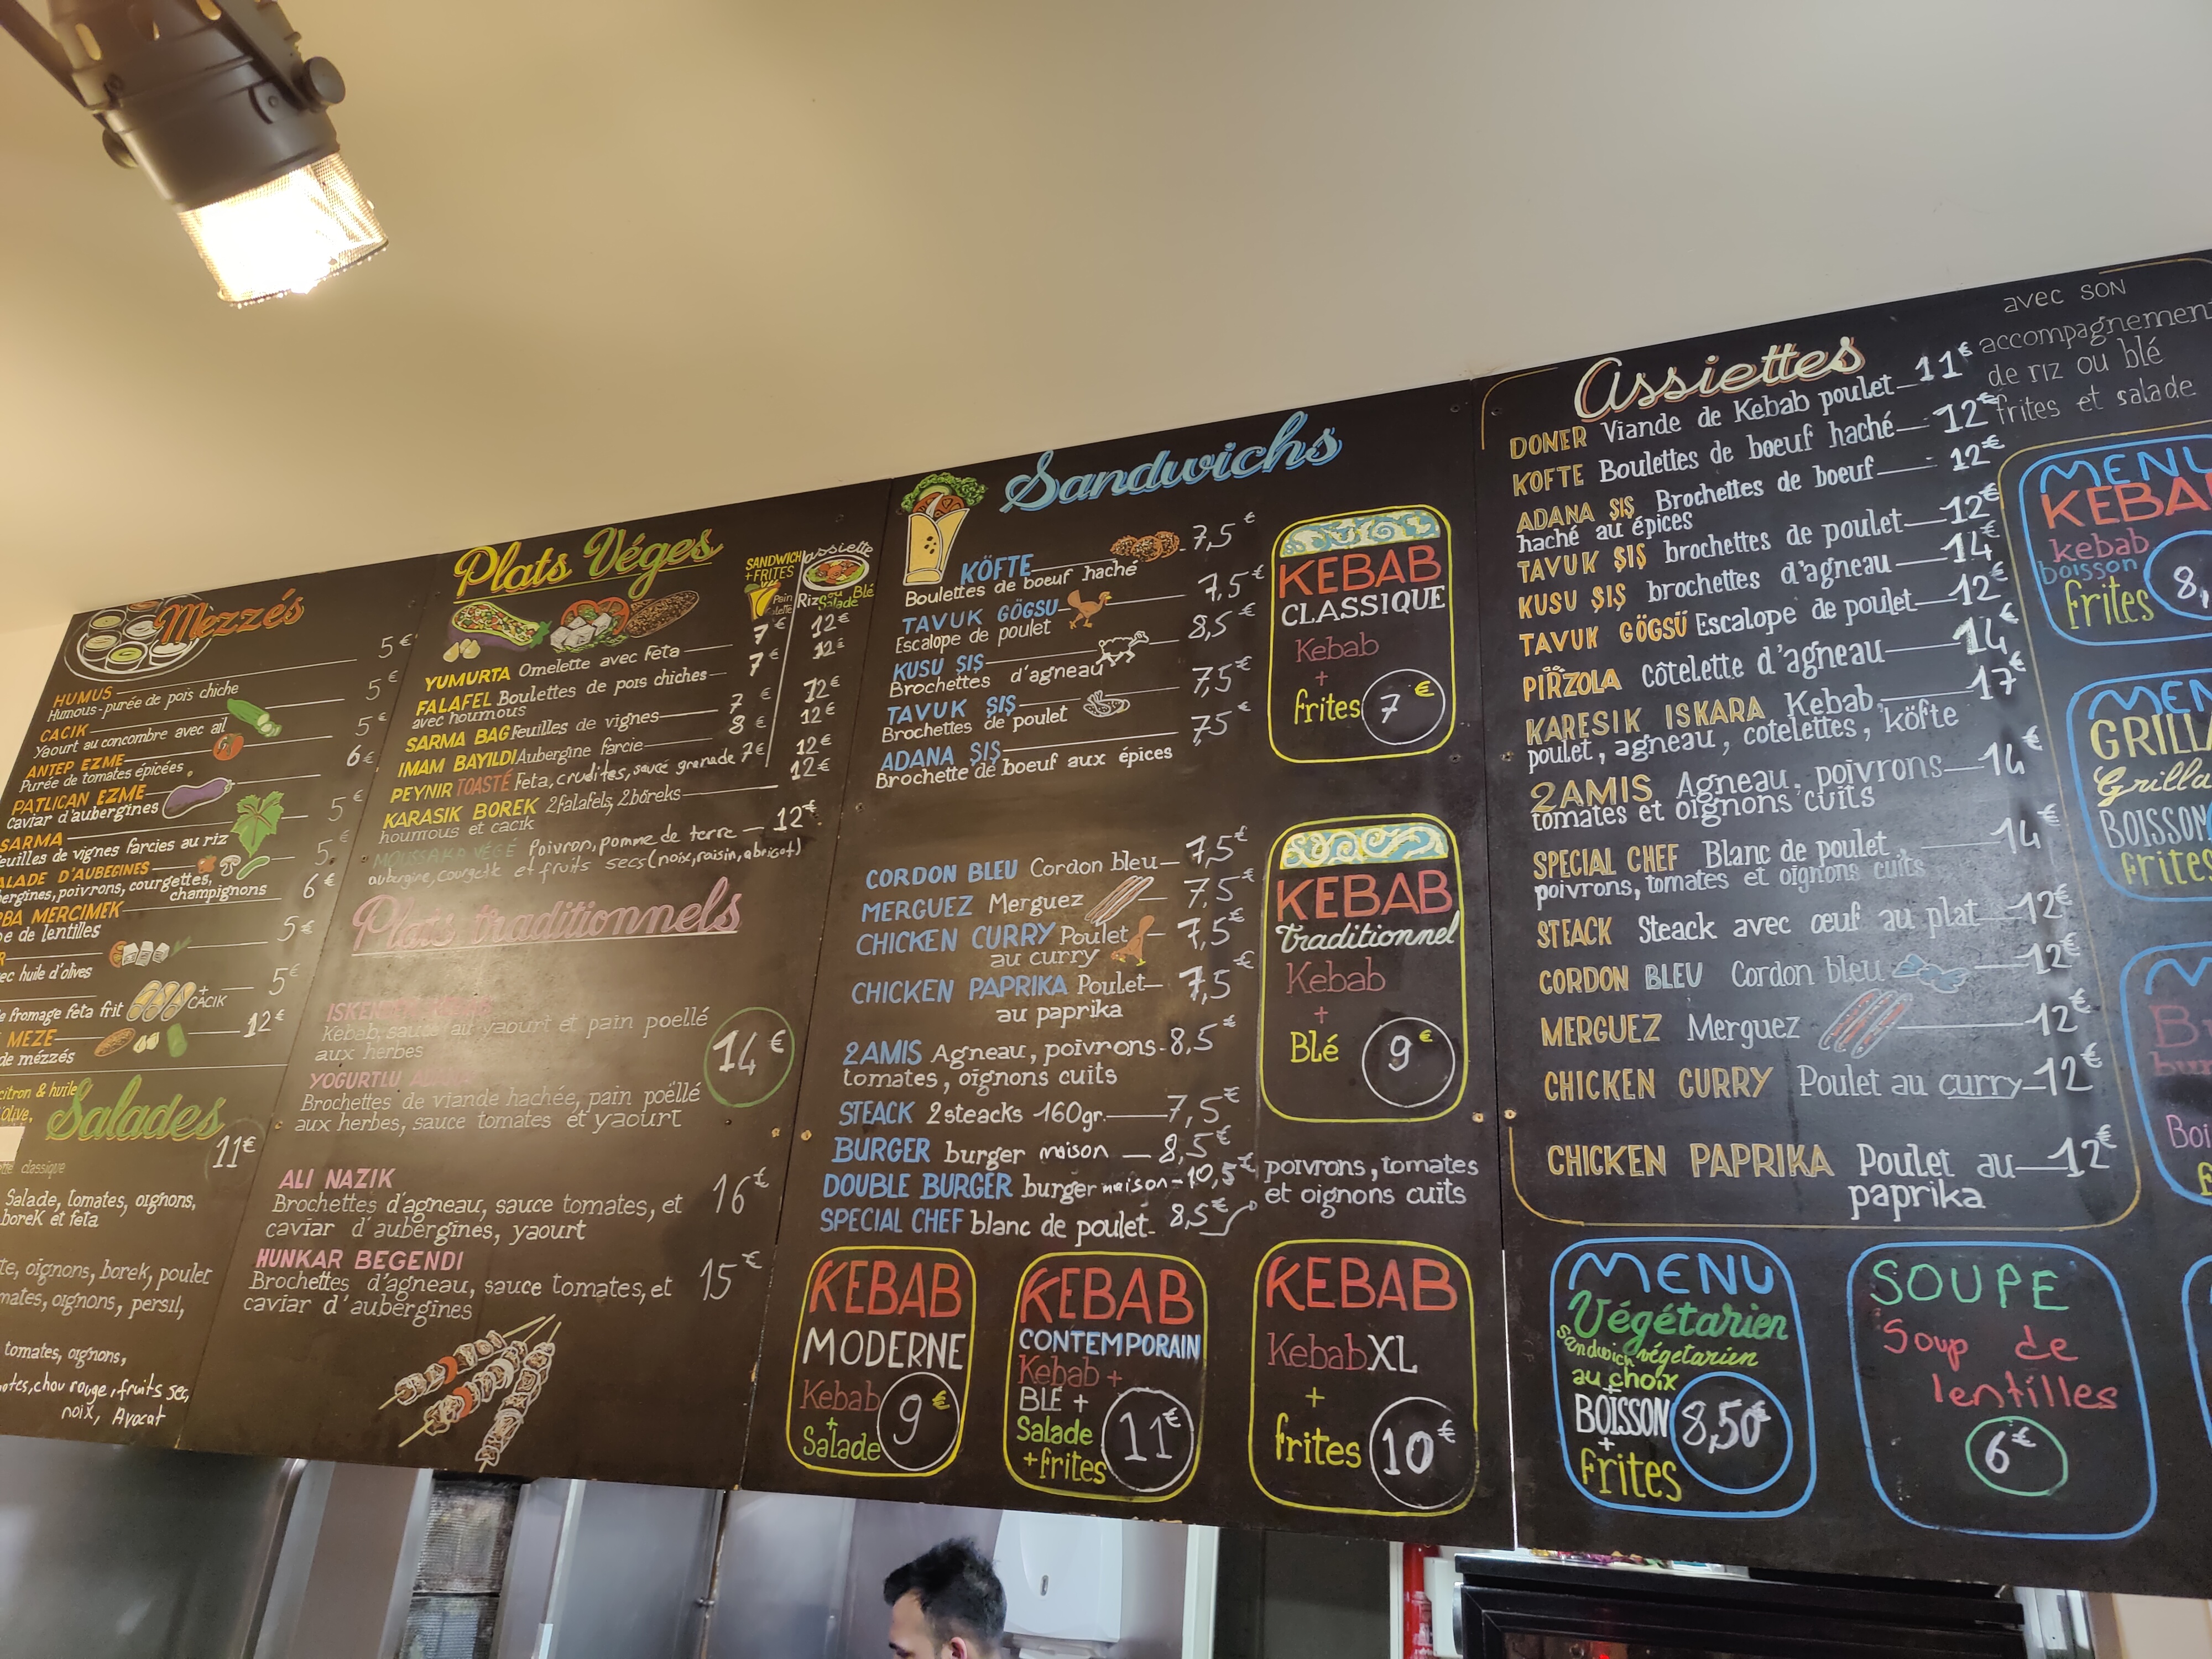 Mezzés
HUMUS 5€
Humous-purée de pois chiche
CACIK 5€
Yaourt au concombre avec ail
ANTEP EZME 5€
Purée de tomates épicées
PATLICAN EZME 6€
Caviar d'aubergines
SARMA 5€
feuilles de vignes farcies au riz
D'AUBEGINES 5€
poivrons, courgettes,
champignons
MERCIMEK 6€
de lentilles
5€
huile d'olives
+ CACIK 5€
fromage feta frit
MEZE 12€
de mézzés
citron & huile
Olive,
Salades
11€
classique
Salade, tomates, oignons,
borek et feta
oignons, borek, poulet
oignons, persil,
tomates, oignons,
chou rouge, fruits sec,
noix, Avocat
Plats Véges
SANDWICH
+FRITES
Pain
assiette
Riz ou Blé
Salade
YUMURTA Omelette avec Feta 7€ 12€
FALAFEL Boulettes de pois chiches 7€ 12€
avec houmous
SARMA BAG Feuilles de vignes 7€ 12€
IMAM BAYILDI Aubergine farcie 8€ 12€
PEYNIR TOASTÉ Feta, crudites, saucé grenade 7€ 12€
KARASIK BOREK 2 falafels, 2 böreks 12€
houmous et cacik
MOUSSAKA VÉGÉ Poivron, pomme de terre 12€
aubergine, courgette et fruits secs (noix, raisin, abricot)
Plats traditionnels
Kebab, sauce au yaourt et pain poellé
aux herbes
14€
YOGURTLU
Brochettes de viande hachée, pain poëllé
aux herbes, sauce tomates et yaourt
ALI NAZIK 16€
Brochettes d'agneau, sauce tomates, et
caviar d'aubergines, yaourt
HUNKAR BEGENDI 15€
Brochettes d'agneau, sauce tomates, et
caviar d'aubergines
Sandwichs
KÖFTE 7,5€
Boulettes de boeuf haché
TAVUK GÖGSU 7,5€
Escalope de poulet
KUSU ŞIŞ 8,5€
Brochettes d'agneau
TAVUK ŞIŞ 7,5€
Brochettes de poulet
ADANA ŞIŞ 7,5€
Brochette de boeuf aux épices
CORDON BLEU Cordon bleu 7,5€
MERGUEZ Merguez 7,5€
CHICKEN CURRY Poulet 7,5€
au curry
CHICKEN PAPRIKA Poulet 7,5€
au paprika
2 AMIS Agneau, poivrons 8,5€
tomates, oignons cuits
STEACK 2 steacks 160gr. 7,5€
BURGER burger maison 8,5€
DOUBLE BURGER burger maison 10,5€
SPECIAL CHEF blanc de poulet 8,5€
poivrons, tomates
et oignons cuits
KEBAB
CLASSIQUE
Kebab
+
frites 7€
KEBAB
traditionnel
Kebab
+
Blé 9€
KEBAB
MODERNE
Kebab
+
Salade 9€
KEBAB
CONTEMPORAIN
Kebab +
BLÉ +
Salade
+frites 11€
KEBAB
Kebab XL
+
frites 10€
Assiettes
avec SON
accompagnement
de riz ou blé
frites et salade
DONER Viande de Kebab poulet 11€
KOFTE Boulettes de boeuf haché 12€
ADANA ŞIŞ Brochettes de boeuf 12€
haché au épices
TAVUK ŞIŞ brochettes de poulet 12€
KUSU ŞIŞ brochettes d'agneau 14€
TAVUK GÖGSÜ Escalope de poulet 12€
PIRZOLA Côtelette d'agneau 14€
KARESIK ISKARA Kebab, 17€
poulet, agneau, cotelettes, köfte
2 AMIS Agneau, poivrons 14€
tomates et oignons cuits
SPECIAL CHEF Blanc de poulet, 14€
poivrons, tomates et oignons cuits
STEACK Steack avec œuf au plat 12€
CORDON BLEU Cordon bleu 12€
MERGUEZ Merguez 12€
CHICKEN CURRY Poulet au curry 12€
CHICKEN PAPRIKA Poulet au 12€
paprika
MENU
Végétarien
sandwich végétarien
au choix
+
BOISSON
+
frites 8,50€
SOUPE
Soup de
lentilles
6€
MENU
kebab
boisson
frites
BOISSON
frites